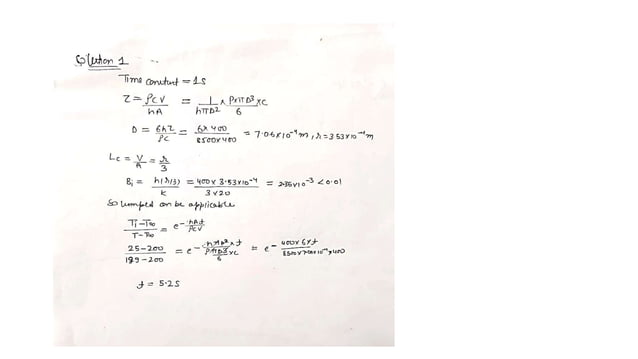 Solution 1
Time constant = 1s
τ = ρCV/hA = 1/hπD² × ρ×πD³/6 ×c
D = 6hτ/ρC = 6×400/8500×400 = 7.06×10⁻⁴m, r = 3.53×10⁻⁴m
Lc = V/A = r/3
Bi = h(r/3)/k = 400×3.53×10⁻⁴/3×20 = 2.35×10⁻³ < 0.01
So lumped can be applicable
Ti-T∞/T-T∞ = e^-hAt/ρCV
25-200/199-200 = e^-hπD²×t/ρπD³/6 ×c = e^-400×6×t/8500×7.06×10⁻⁴×400
t = 5.2s